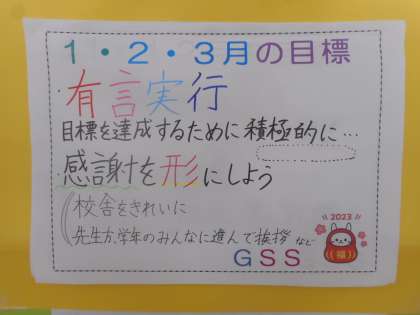 1・2・3月の目標
有言実行
目標を達成するために積極的に…
感謝を形にしよう
校舎をきれいに
先生方、学年のみんなに進んで挨拶 など
GSS
2023
福